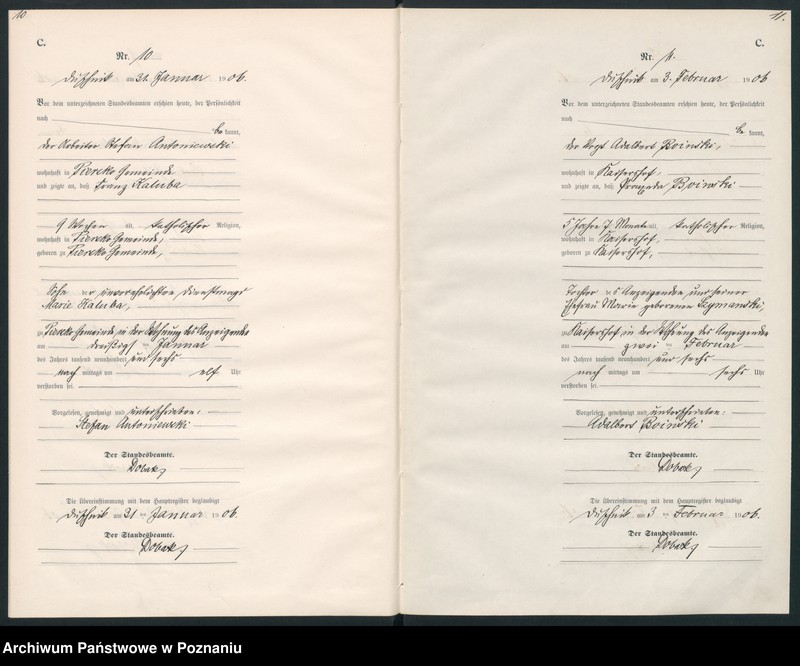 10
C.
Nr. 10
Duschnik am 31. Januar 1906.
Vor dem unterzeichneten Standesbeamten erschien heute, der Persönlichkeit
nach
be kannt,
der Arbeiter Stefan Antoniewski
wohnhaft in Piersko Gemeinde
und zeigte an, daß Franz Kaluba
9 Wochen alt, katholischer Religion,
wohnhaft in Piersko Gemeinde,
geboren zu Piersko Gemeinde,
Sohn der unverehelichten Dienstmagd
Marie Kaluba,
zu Piersko Gemeinde in der Wohnung des Anzeigenden
am dreißigsten Januar
des Jahres tausend neunhundert und sechs
nach mittags um elf Uhr
verstorben sei.
Vorgelesen, genehmigt und unterschrieben:
Stefan Antoniewski
Der Standesbeamte.
Die Übereinstimmung mit dem Hauptregister beglaubigt
Duschnik am 31 ten Januar 1906.
Der Standesbeamte.
11.
C.
Nr. 11.
Duschnik am 3. Februar 1906
Vor dem unterzeichneten Standesbeamten erschien heute, der Persönlichkeit
nach
be kannt,
der Vogt Adalbert Boinski,
wohnhaft in Kaisershof,
und zeigte an, daß Praxeda Boinski
5 Jahre 7 Monate alt, katholischer Religion,
wohnhaft in Kaisershof,
geboren zu Kaisershof,
Tochter des Anzeigenden und seiner
Ehefrau Marie geborenen Szymanski,
zu Kaisershof in der Wohnung des Anzeigenden
am zwei ten Februar
des Jahres tausend neunhundert und sechs
nach mittags um sechs Uhr
verstorben sei.
Vorgelesen, genehmigt und unterschrieben:
Adalbert Boinski
Der Standesbeamte.
Die Übereinstimmung mit dem Hauptregister beglaubigt
Duschnik am 3 ten Februar 1906.
Der Standesbeamte.
Archiwum Państwowe w Poznaniu